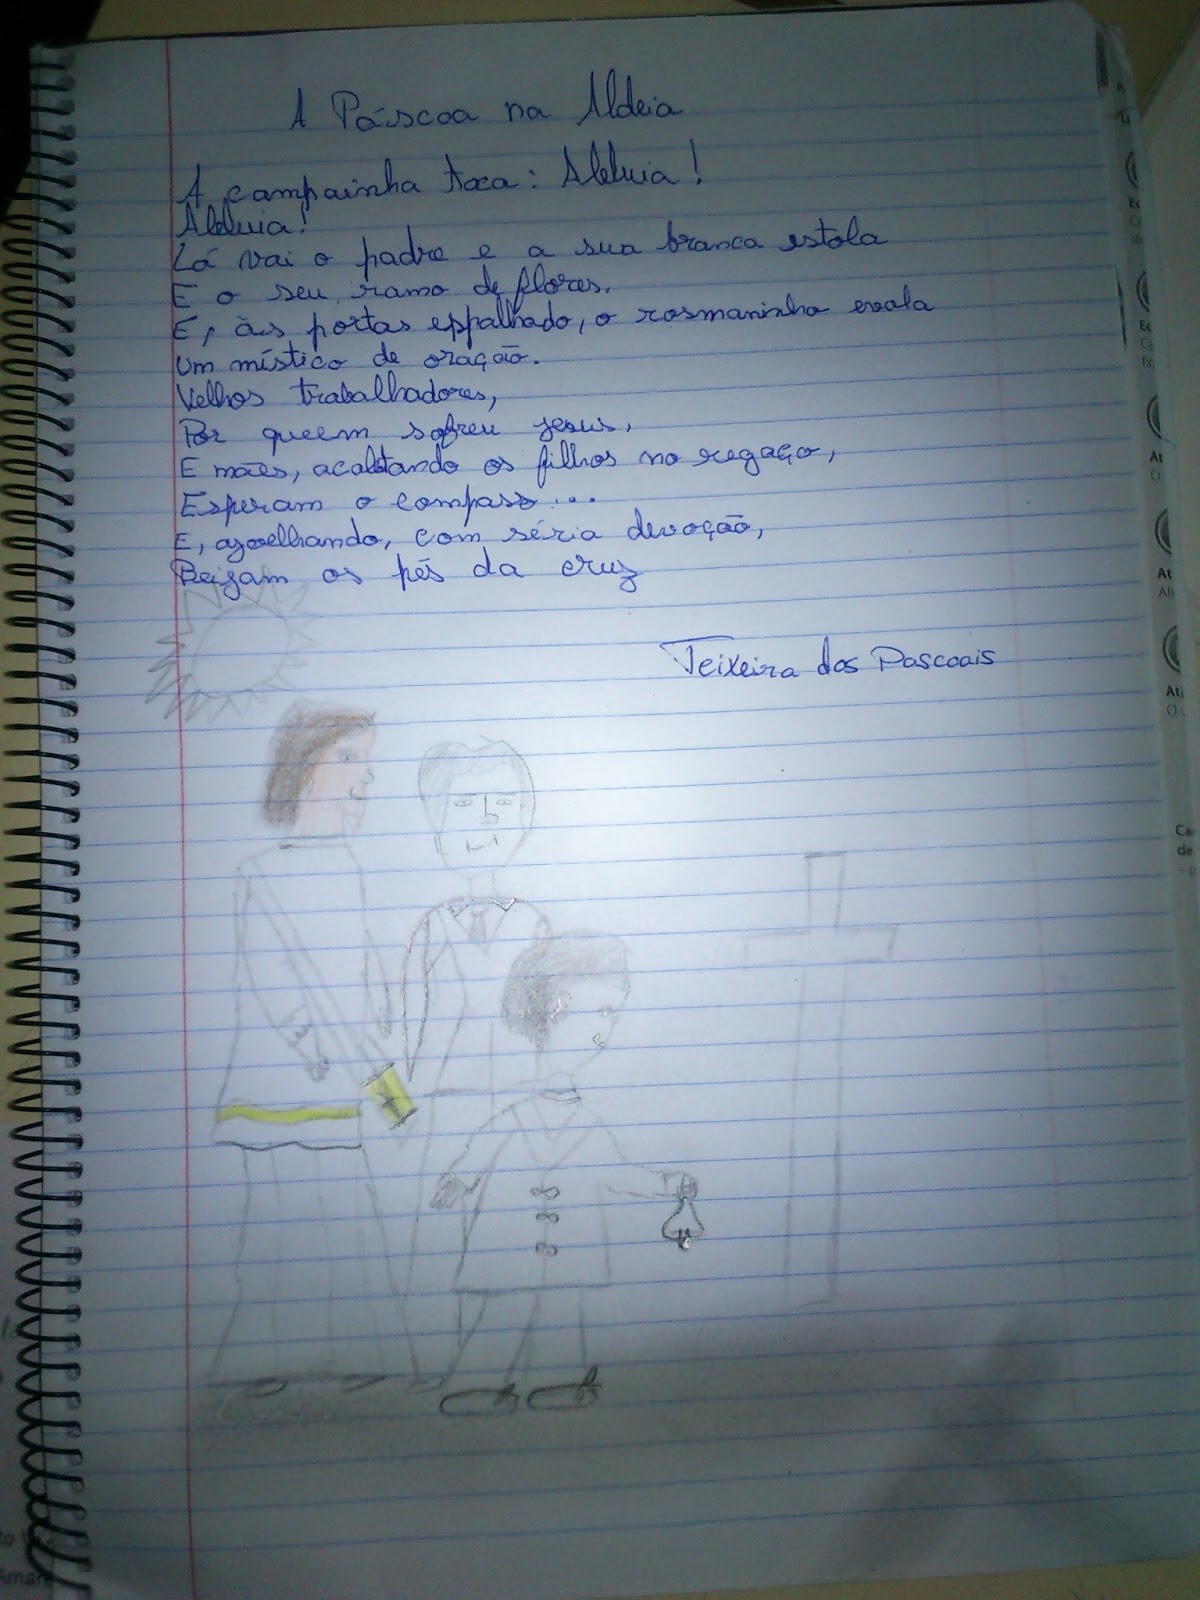 A Páscoa na Aldeia
A campainha toca: Aleluia!
Aleluia!
Lá vai o padre e a sua branca estola
E o seu ramo de flores.
E, às portas espalhado, o rosmaninho evala
Um místico de oração.
Velhos trabalhadores,
Por queem sofreu Jesus,
E mães, acalétando os filhos no regaço,
Esperam o compasso...
E, ajoelhando, com séria devoção,
Beijam os pés da cruz
Teixeira dos Pascoais